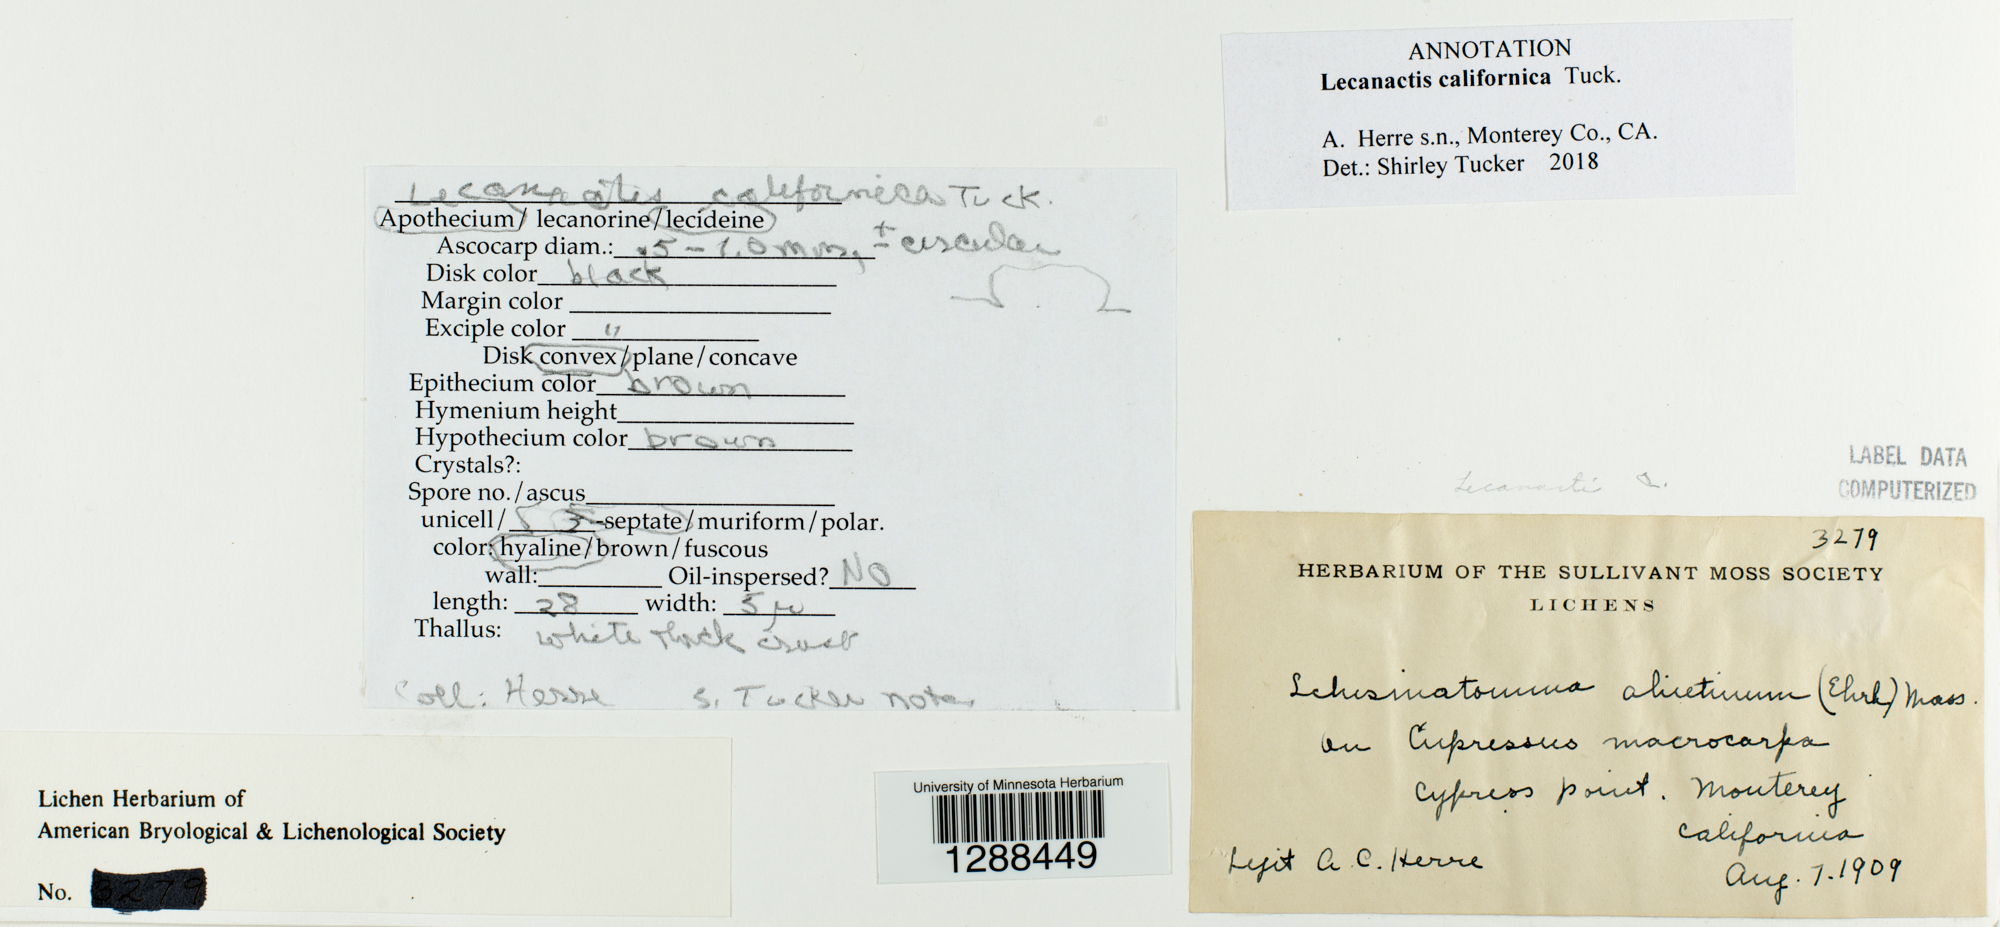 ANNOTATION
Lecanactis californica Tuck.
A. Herre s.n., Monterey Co., CA.
Det.: Shirley Tucker 2018
Lecanactis californica Tuck.
Apothecium/ lecanorine/lecideine
Ascocarp diam.: .5-1.0 mm, ± circular
Disk color black
Margin color
Exciple color "
Disk convex/plane/concave
Epithecium color brown
Hymenium height
Hypothecium color brown
Crystals?:
Spore no./ascus
unicell/ 3-septate/muriform/polar.
color: hyaline/brown/fuscous
wall: Oil-inspersed? No
length: 28 width: 5 µ
Thallus: white thick crust
Coll: Herre S. Tucker note
LABEL DATA
COMPUTERIZED
Lecanacti
3279
HERBARIUM OF THE SULLIVANT MOSS SOCIETY
LICHENS
Schismatomma abietinum (Ehrh) Mass.
on Cupressus macrocarpa
Cypress point. Monterey
California
Legit A. C. Herre
Aug. 7. 1909
Lichen Herbarium of
American Bryological & Lichenological Society
No. 3279
University of Minnesota Herbarium
1288449